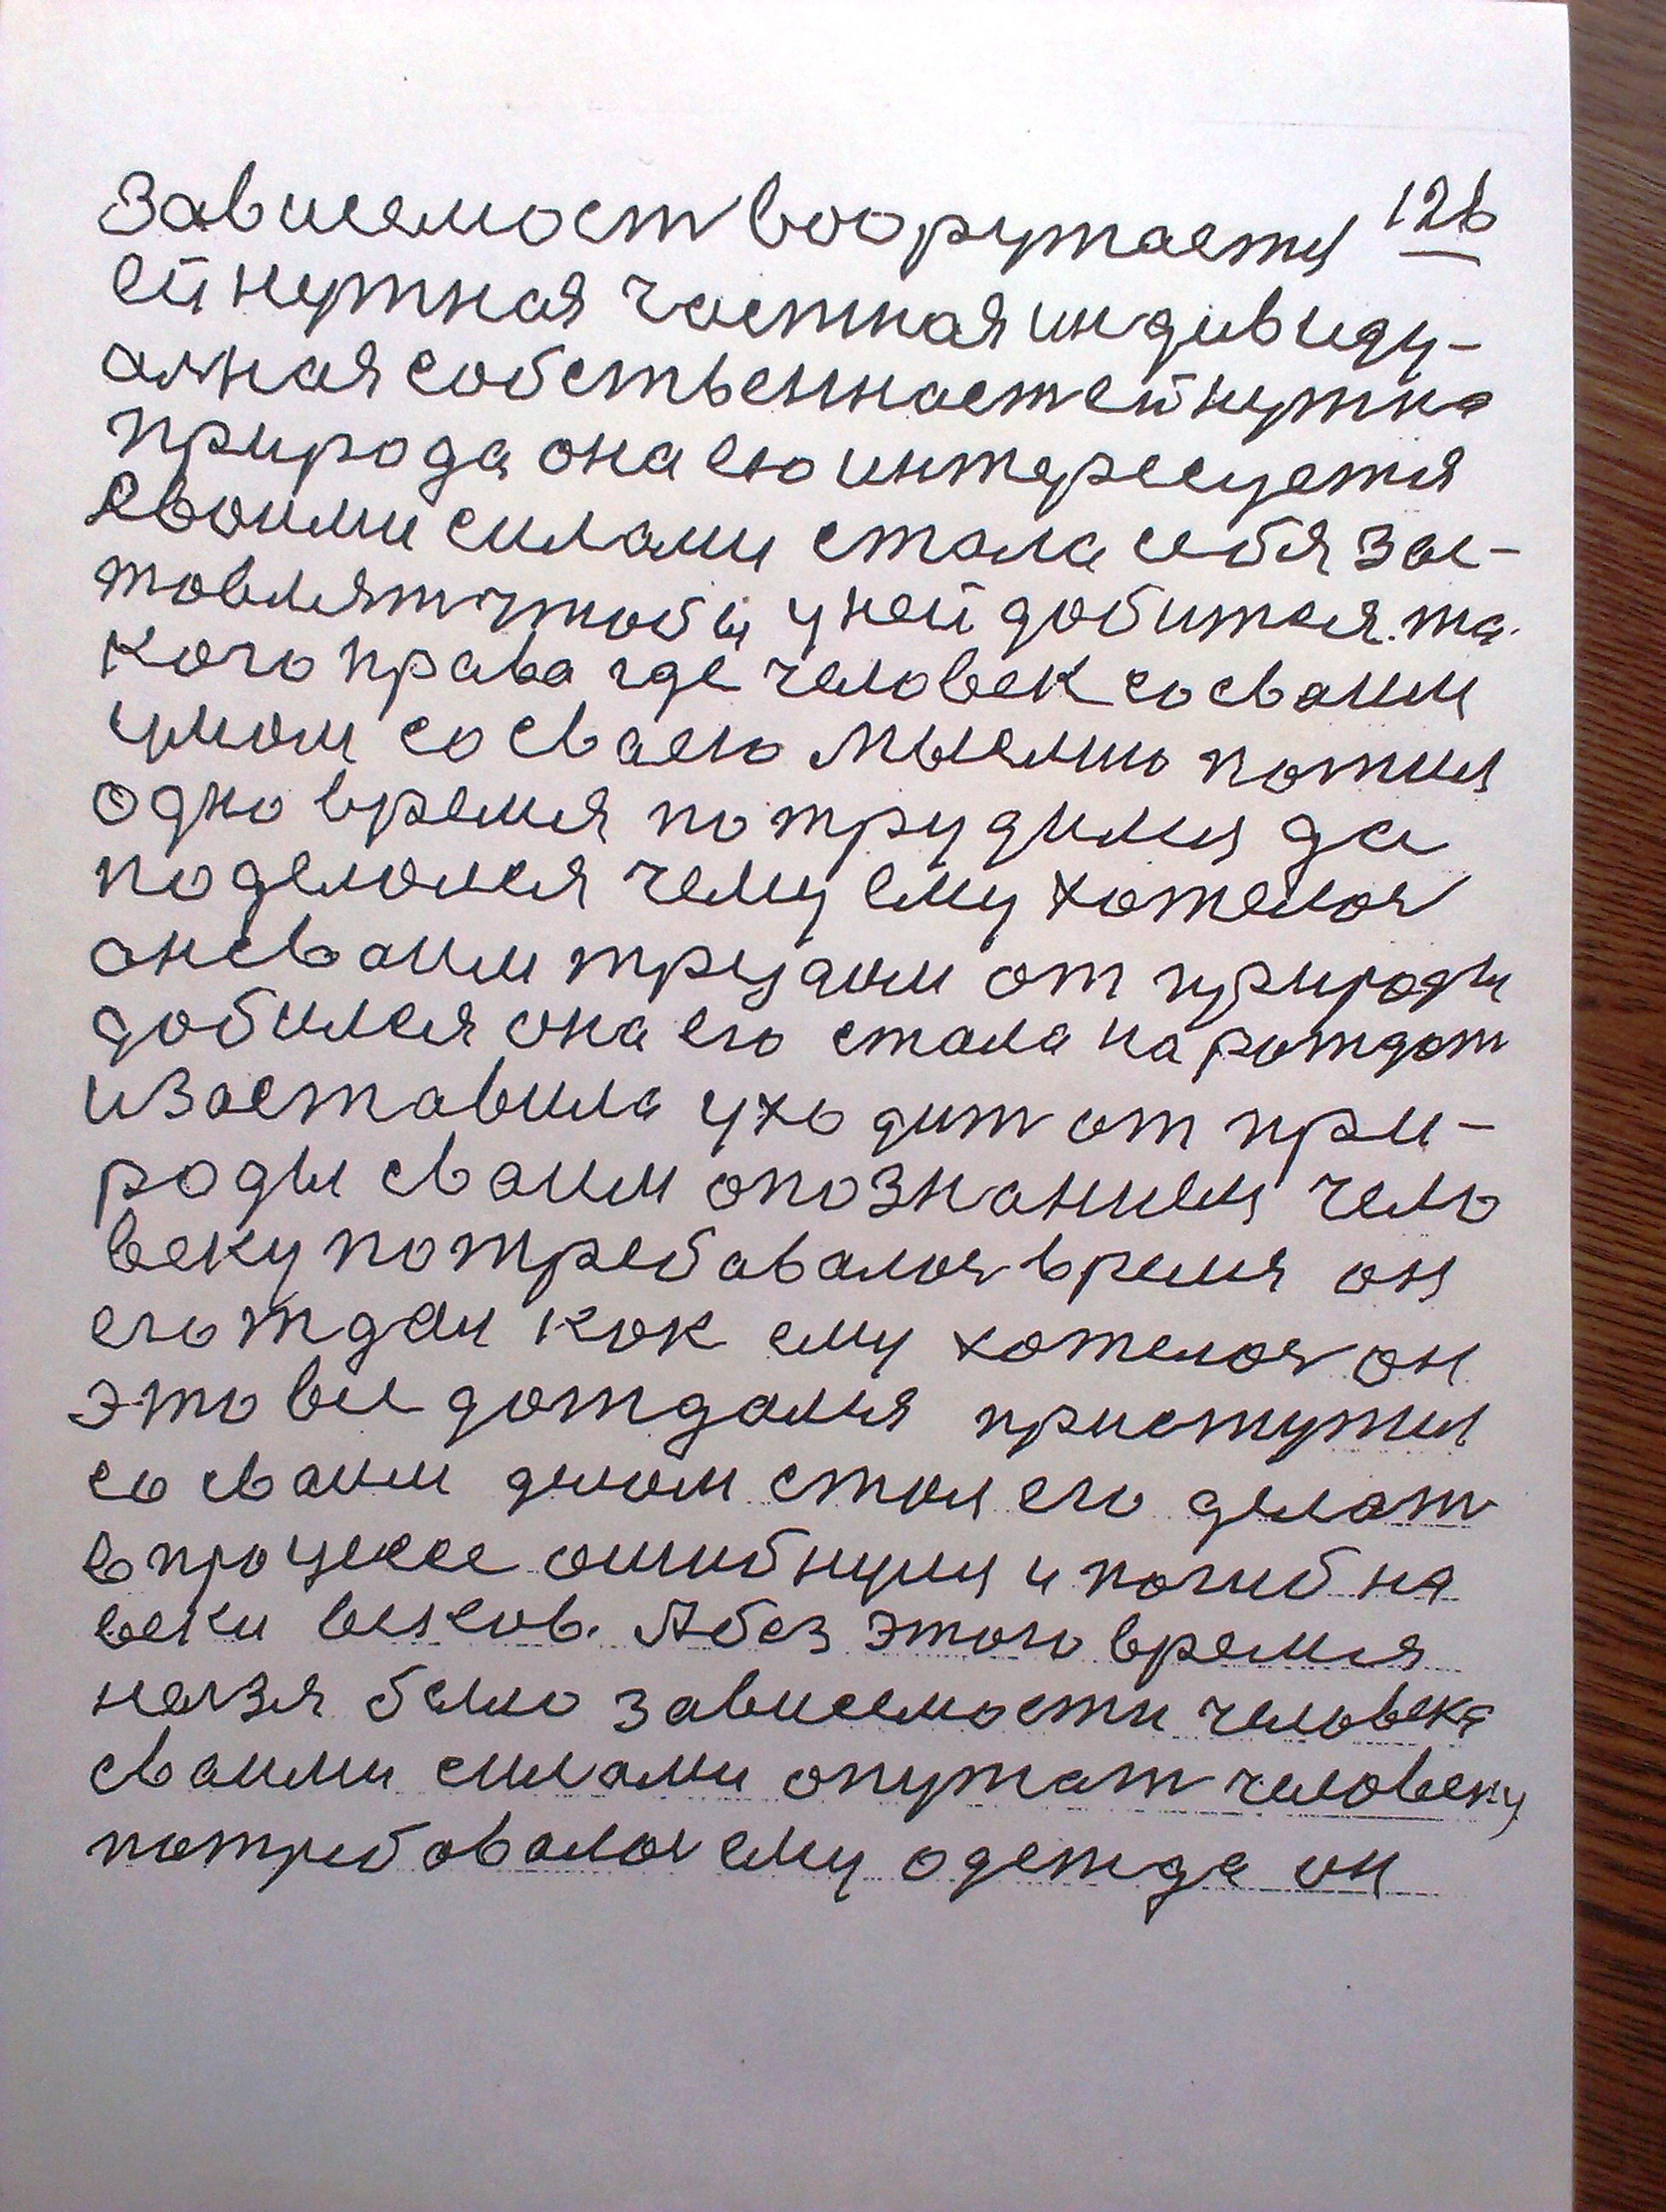 Зависемост вооружается 126
ей нужная частная индивиду-
алная собственност ей нужна
природа она ею интересуется
своими силами стала себя зас-
товлят чтобы у ней добится та-
кого права где человек со сваим
умом со сваею мыслию пожил
одно время потрудился да
поделолся чему ему хотелос
он сваим трудом от природы
добился она его стала нарождат
и заставила уходит от при-
роды сваим опознанием чело
веку потребавалос время он
его ждал как ему хотелос он
это все дождался приступил
со сваим делом стал его делат
в процессе ошибнулся и погиб на
веки веков. А без этого время
нелзя было зависемости человека
сваими силами опутат человеку
потребовалос ему одежда он